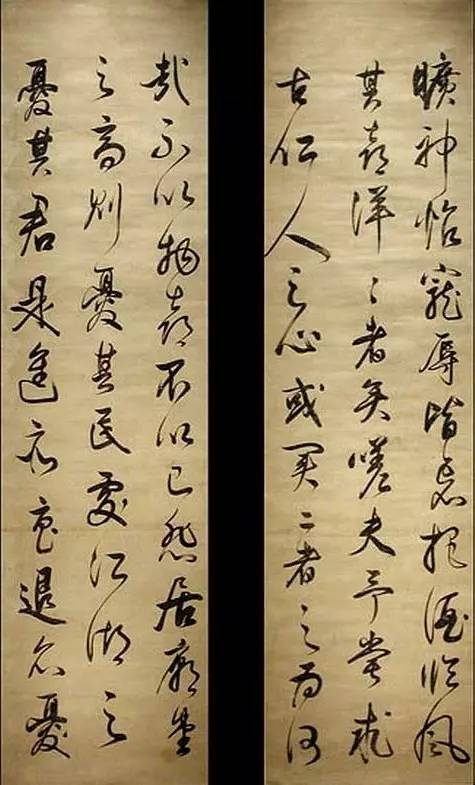 曠神怡寵辱皆忘把酒臨風
其喜洋〻者矣嗟夫予嘗求
古仁人之心或異二者之為何
哉不以物喜不以己悲居廟堂
之高則憂其民處江湖之
憂其君是進亦憂退亦憂